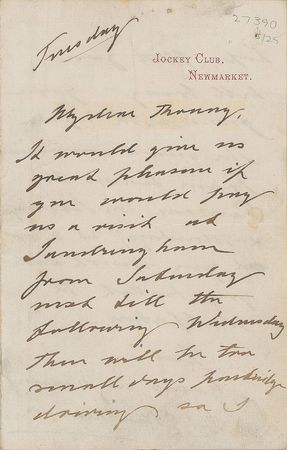 27390
8/25
Tuesday
JOCKEY CLUB,
NEWMARKET.
My dear
It would give us
great pleasure if
you would pay
us a visit at
Sandringham
from Saturday
next till the
following Wednesday
there will be two
small days partridge
driving so I